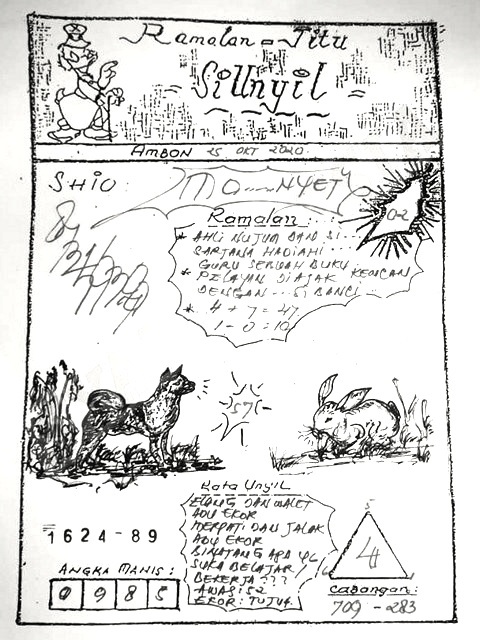 Ramalan - Jitu
Si Unyil
AMBON 25 OKT 2020
SHIO: MO....NYET
02
Ramalan:
* AHLI NUJUM DAN SI...
SARJANA HADIAHI...
GURU SEBUAH BUKU
* PELAYAN DIAJAK KENCAN
DENGAN... SI BANCI
* 4 + 7 = 47
1 - 0 = 10
57
Kata Unyil
ELANG DAN WALET
ADU EKOR
MERPATI DAN JALAK
ADU EKOR
BINATANG APA YG
SUKA BELAJAR
BEKERJA ???
AWAS! 52
EKOR: TUJUH
1624-89
ANGKA MANIS:
0 9 8 5
4
Cabangan:
709 - 283